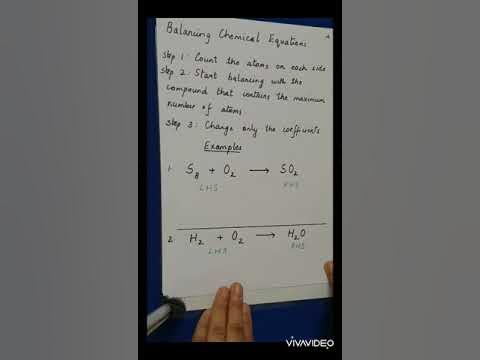 Balancing Chemical Equations
Step 1: Count the atoms on each side
Step 2: Start balancing with the
compound that contains the maximum
number of atoms
Step 3: Change only the coefficients
Examples
1. S₈ + O₂ → SO₂
LHS RHS
2. H₂ + O₂ → H₂O
LHS RHS
VIVAVIDEO